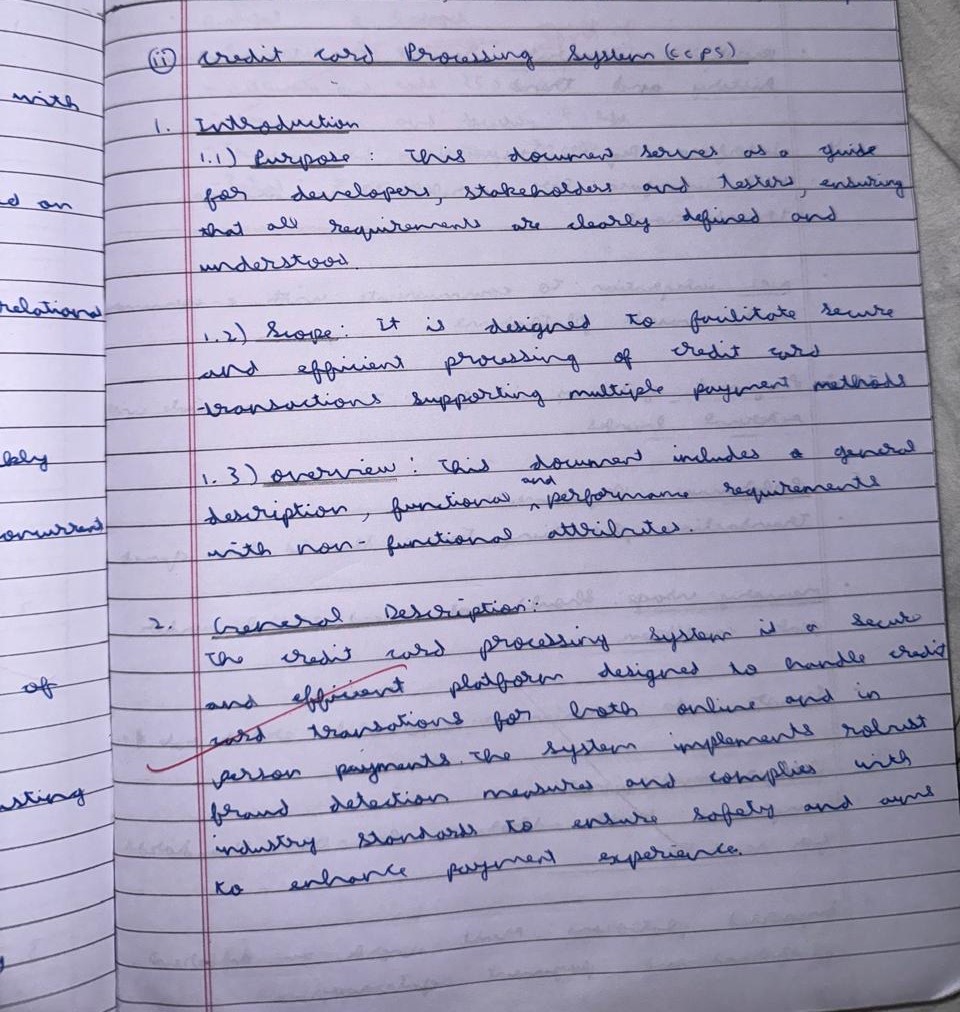 with
d on
relational
kly
oncurrent
of
asting
(ii) Credit card Processing System (CCPS)
1. Introduction
1.1) Purpose : This document serves as a guide
for developers, stakeholders and testers, ensuring
that all requirements are clearly defined and
understood.
1.2) Scope : It is designed to facilitate secure
and efficient processing of credit card
transactions supporting multiple payment methods
1.3) overview : This document includes a general
and
description, functional ^ performance requirements
with non-functional attributes.
2. General Description:
The credit card processing system is a secure
and efficient platform designed to handle credit
card transations for both online and in
person payments. The system implements robust
fraud detection measures and complies with
industry standards to ensure safety and aims
to enhance payment experience.